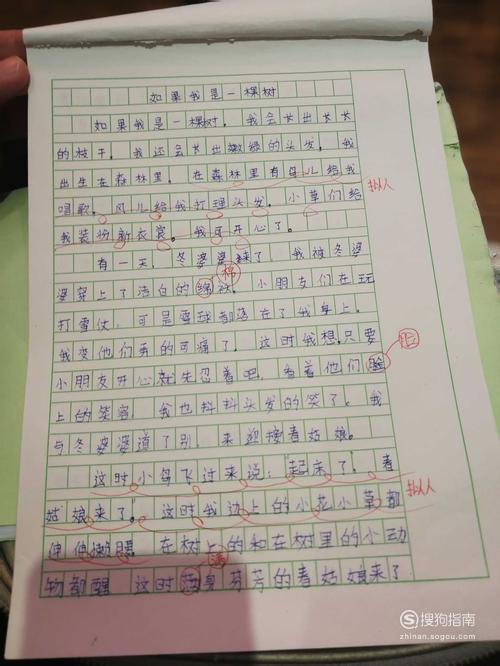 如果我是一棵树
如果我是一棵树，我会长出长长
的枝干。我还会长出嫩绿的头发。我
出生在森林里。在森林里有鸟儿给我
唱歌。风儿给我打理头发。小草们给
拟人
我装扮新衣裳。我可开心了。
有一天，冬婆婆来了，我被冬婆
棉
婆穿上了洁白的绵袄。小朋友们在玩
打雪仗，可是雪球都落在了我身上。
我被他们弄的可痛了。这时我想只要
小朋友开心就先忍着吧，看着他们脸
脸
上的笑容，我也抖抖头发的笑了。我
与冬婆婆道了别，来迎接春姑娘。
这时小鸟飞过来说："起床了。春
姑娘来了。"这时我边上的小花小草都
拟人
伸伸懒腰 在树上的和在树里的小动
满
物都醒 这时 身芬芳的春姑娘来了
搜狗指南
zhinan.sogou.com